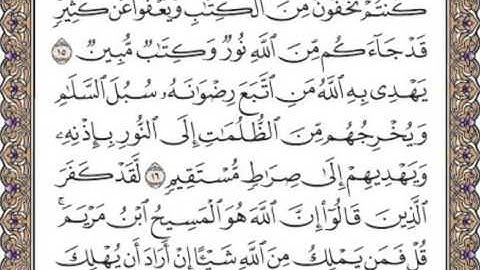 كُنتُمْ تُخْفُونَ مِنَ ٱلْكِتَٰبِ وَيَعْفُوا۟ عَن كَثِيرٍ
قَدْ جَآءَكُم مِّنَ ٱللَّهِ نُورٌ وَكِتَٰبٌ مُّبِينٌ ١٥
يَهْدِى بِهِ ٱللَّهُ مَنِ ٱتَّبَعَ رِضْوَٰنَهُۥ سُبُلَ ٱلسَّلَٰمِ
وَيُخْرِجُهُم مِّنَ ٱلظُّلُمَٰتِ إِلَى ٱلنُّورِ بِإِذْنِهِۦ
وَيَهْدِيهِمْ إِلَىٰ صِرَٰطٍ مُّسْتَقِيمٍ ١٦ لَّقَدْ كَفَرَ
ٱلَّذِينَ قَالُوٓا۟ إِنَّ ٱللَّهَ هُوَ ٱلْمَسِيحُ ٱبْنُ مَرْيَمَ ۚ
قُلْ فَمَن يَمْلِكُ مِنَ ٱللَّهِ شَيْـًٔا إِنْ أَرَادَ أَن يُهْلِكَ